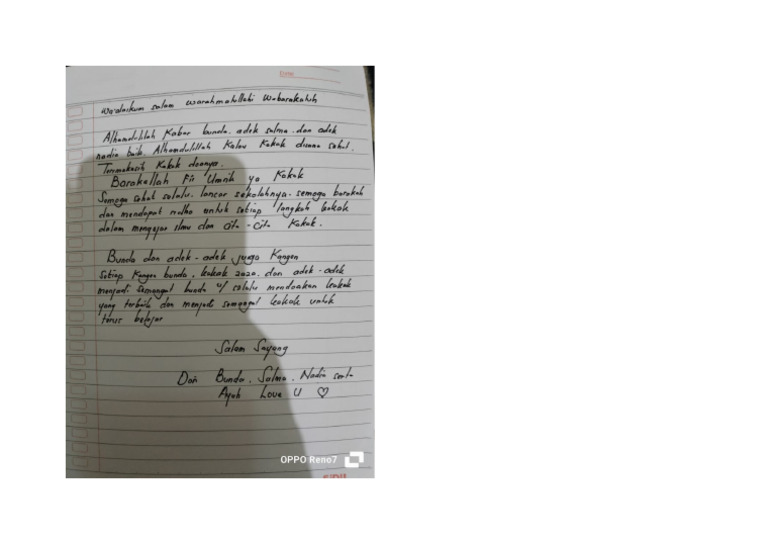 Date
Wa'alaikum salam warahmatullahi Wabarakatuh
Alhamdulillah Kabar bunda, adek salma dan adek
nadia baik. Alhamdulillah Kalau Kakak disana sehat.
Terimakasih Kakak doanya.
Barakallah Fii Umrik ya Kakak
Semoga sehat selalu, lancar sekolahnya, semoga barakah
dan mendapat ridho untuk setiap langkah kakak
dalam mengejar ilmu dan cita-cita Kakak.
Bunda dan adek-adek juga Kangen
Setiap Kangen bunda, kakak zaza, dan adek-adek
menjadi semangat bunda u/ selalu mendoakan kakak
yang terbaik dan menjadi semangat kakak untuk
terus belajar
Salam Sayang
Dari Bunda, Salma, Nadia serta
Ayah Love U
OPPO Reno7